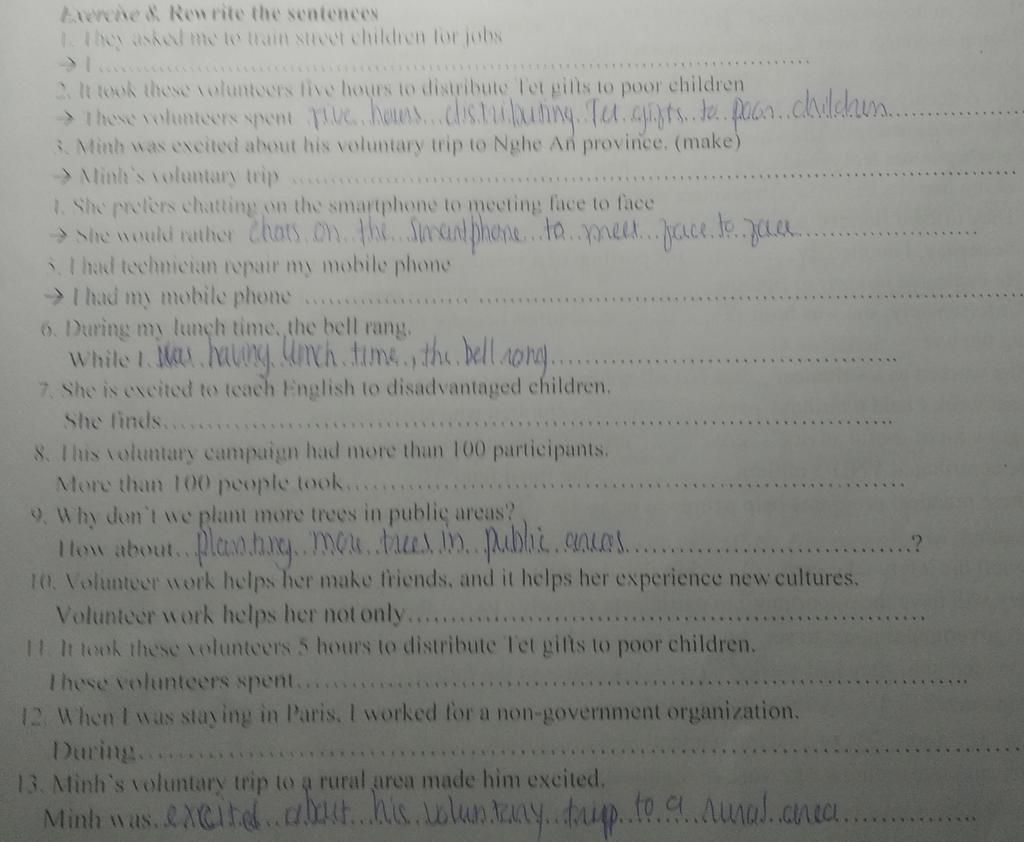 Exercise 8. Rewrite the sentences
1. They asked me to train street children for jobs
→ I ........................................
2. It took these volunteers five hours to distribute Tet gifts to poor children
→ These volunteers spent five hours distributing Tet gifts to poor children
3. Minh was excited about his voluntary trip to Nghe An province. (make)
→ Minh's voluntary trip ........................................
4. She prefers chatting on the smartphone to meeting face to face
→ She would rather chats on the smartphone to meet face to face
5. I had technician repair my mobile phone
→ I had my mobile phone ........................................
6. During my lunch time, the bell rang.
While I was having lunch time, the bell rong
7. She is excited to teach English to disadvantaged children.
She finds........................................
8. This voluntary campaign had more than 100 participants.
More than 100 people took........................................
9. Why don't we plant more trees in public areas?
How about planting more trees in public areas ?
10. Volunteer work helps her make friends, and it helps her experience new cultures.
Volunteer work helps her not only........................................
11. It took these volunteers 5 hours to distribute Tet gifts to poor children.
These volunteers spent........................................
12. When I was staying in Paris, I worked for a non-government organization.
During........................................
13. Minh's voluntary trip to a rural area made him excited.
Minh was excited about his voluntary tripp to a rural area